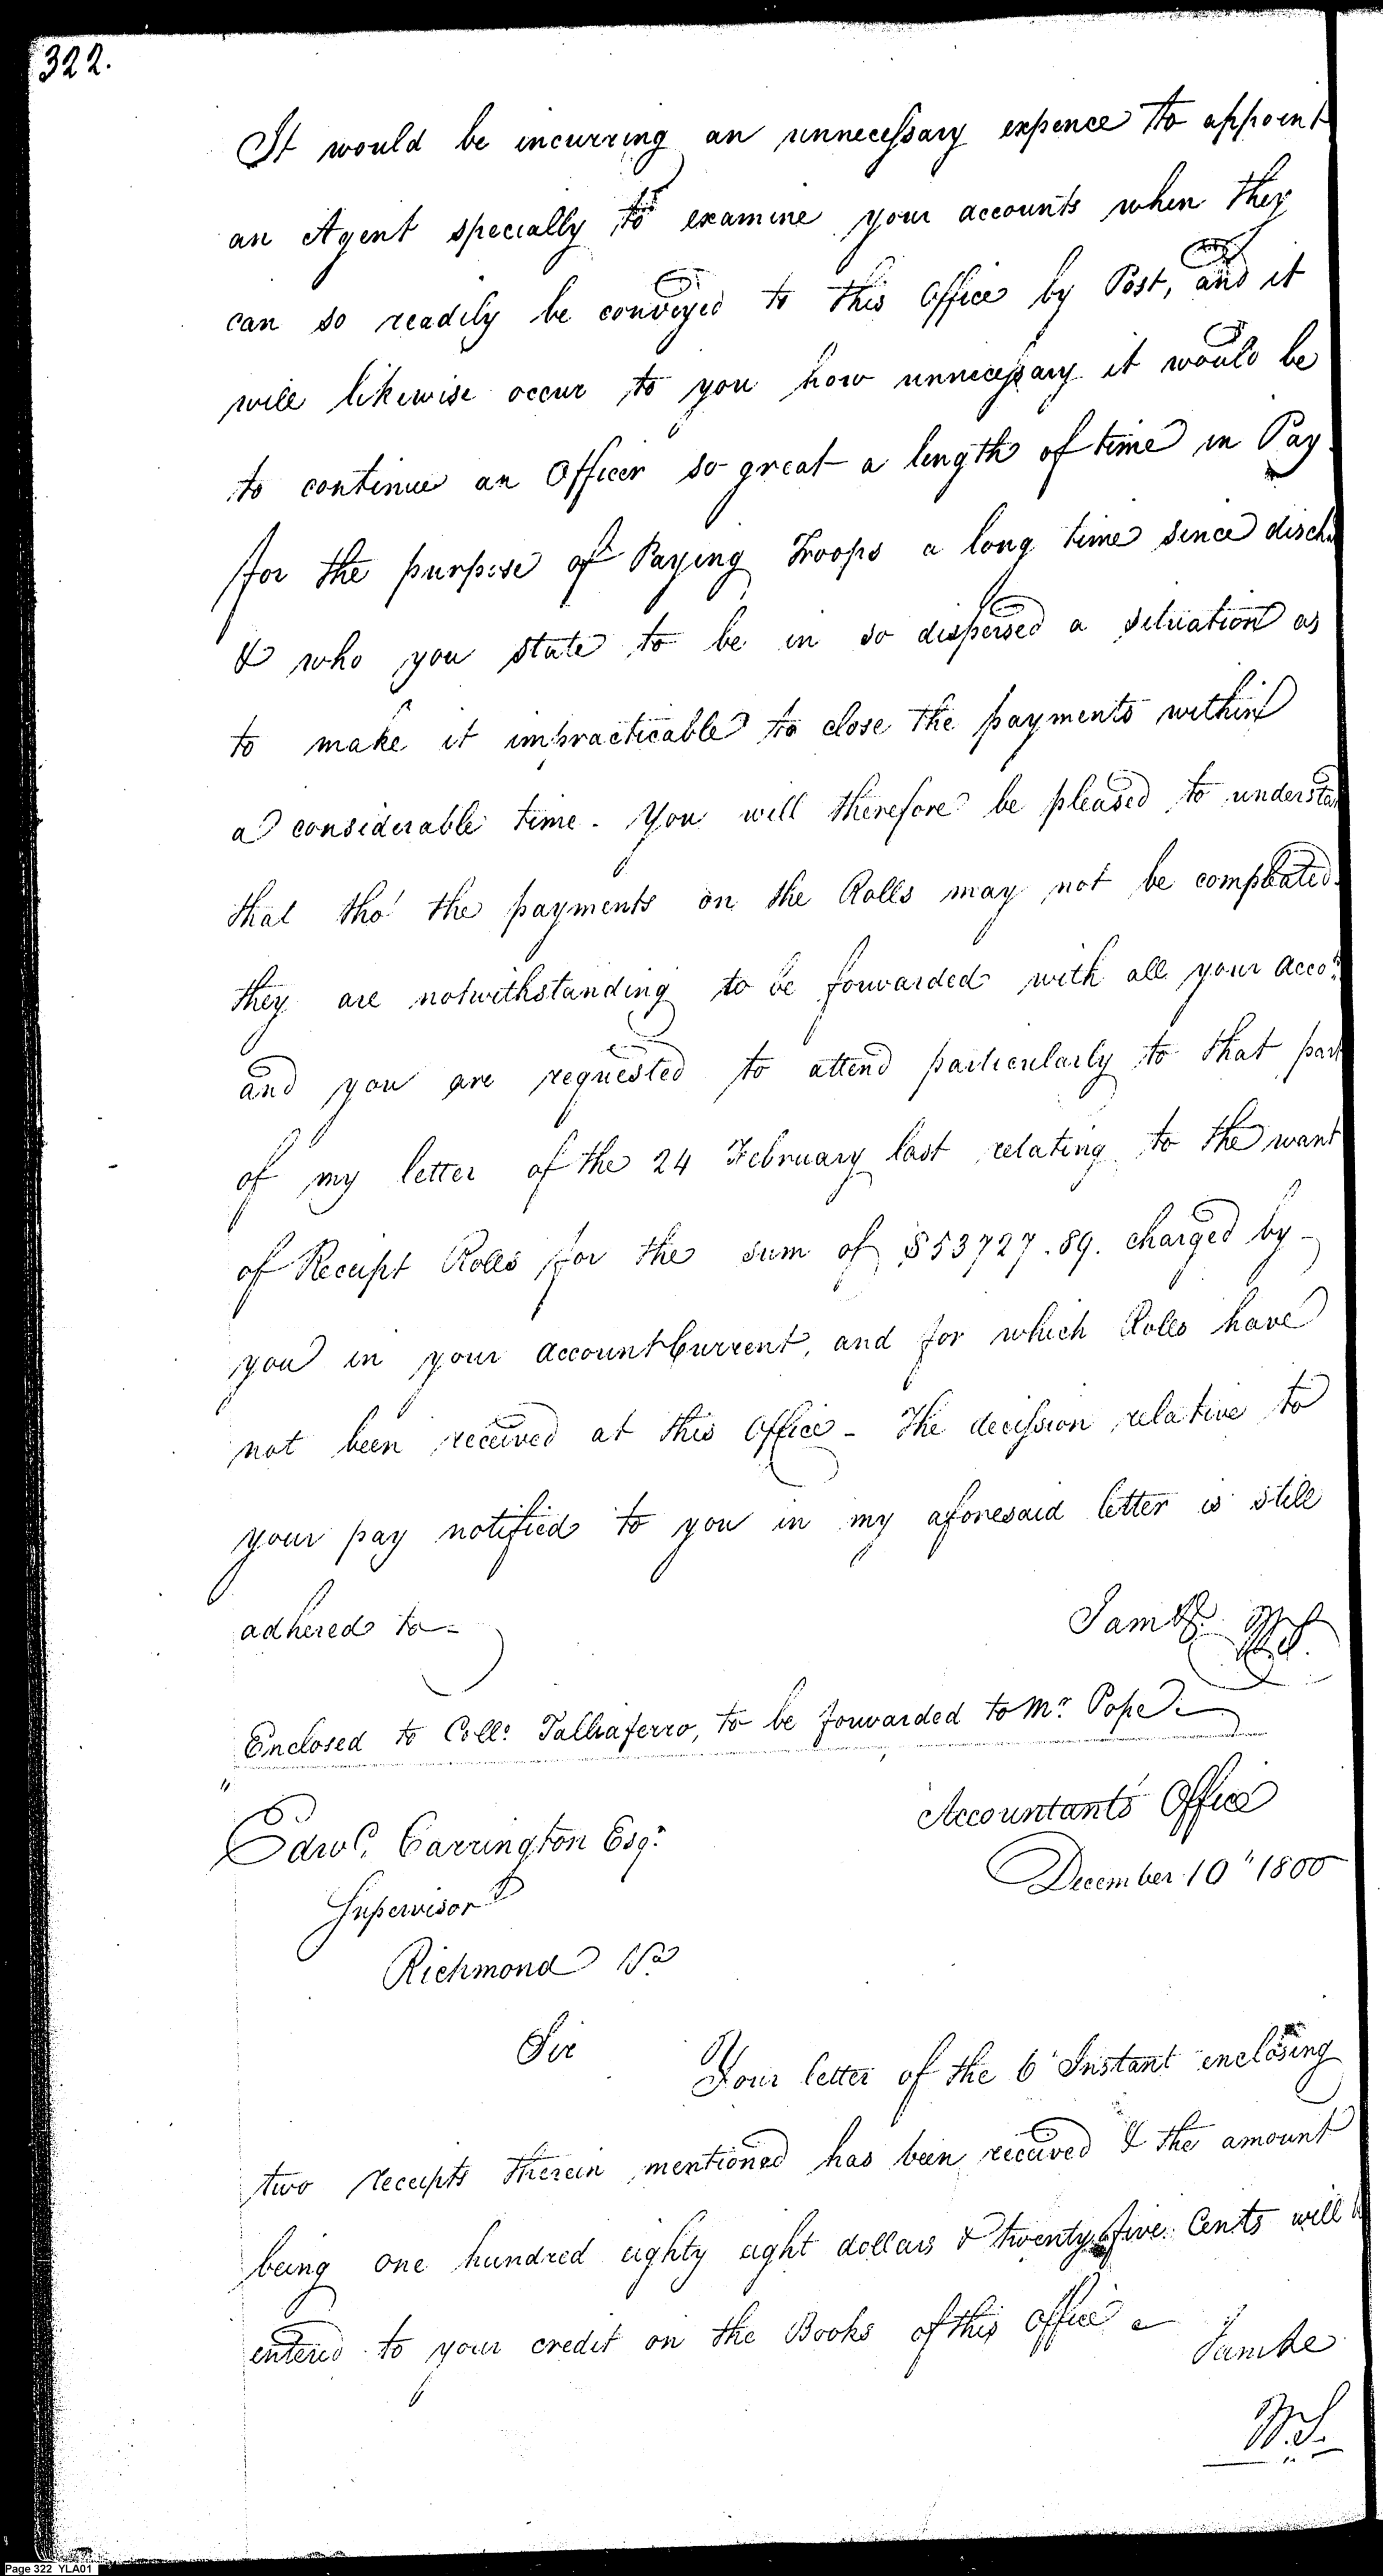 322.
It would be incurring an unnecessary expence to appoint
an Agent specially to examine your accounts when they
can so readily be conveyed to this Office by Post, and it
will likewise occur to you how unnecessary it would be
to continue an Officer so great a length of time in Pay
for the purpose of Paying Troops a long time since disch
& who you state to be in so dispersed a situation as
to make it impracticable to close the payments within
a considerable time. You will therefore be pleased to understa
that tho' the payments on the Rolls may not be compleated
they are notwithstanding to be forwarded with all your Acco.ts
and you are requested to attend particularly to that part
of my letter of the 24 February last relating to the want
of Receipt Rolls for the sum of $53727.89. charged by
you in your Account Current, and for which Rolls have
not been received at this Office - The decission relative to
your pay notified to you in my aforesaid letter is still
adhered to - I am &c. W.S.
Enclosed to Coll.o Talliaferro, to be forwarded to Mr. Pope -
Accountants Office
Edwd. Carrington Esqr.
December 10" 1800
Supervisor
Richmond Va
Sir
Your letter of the 6 Instant enclosing
two receipts therein mentioned has been received & the amount
being one hundred eighty eight dollars & twenty five Cents will b
entered to your credit on the Books of this Office - I am &c
W.S.
Page 322 YLA01